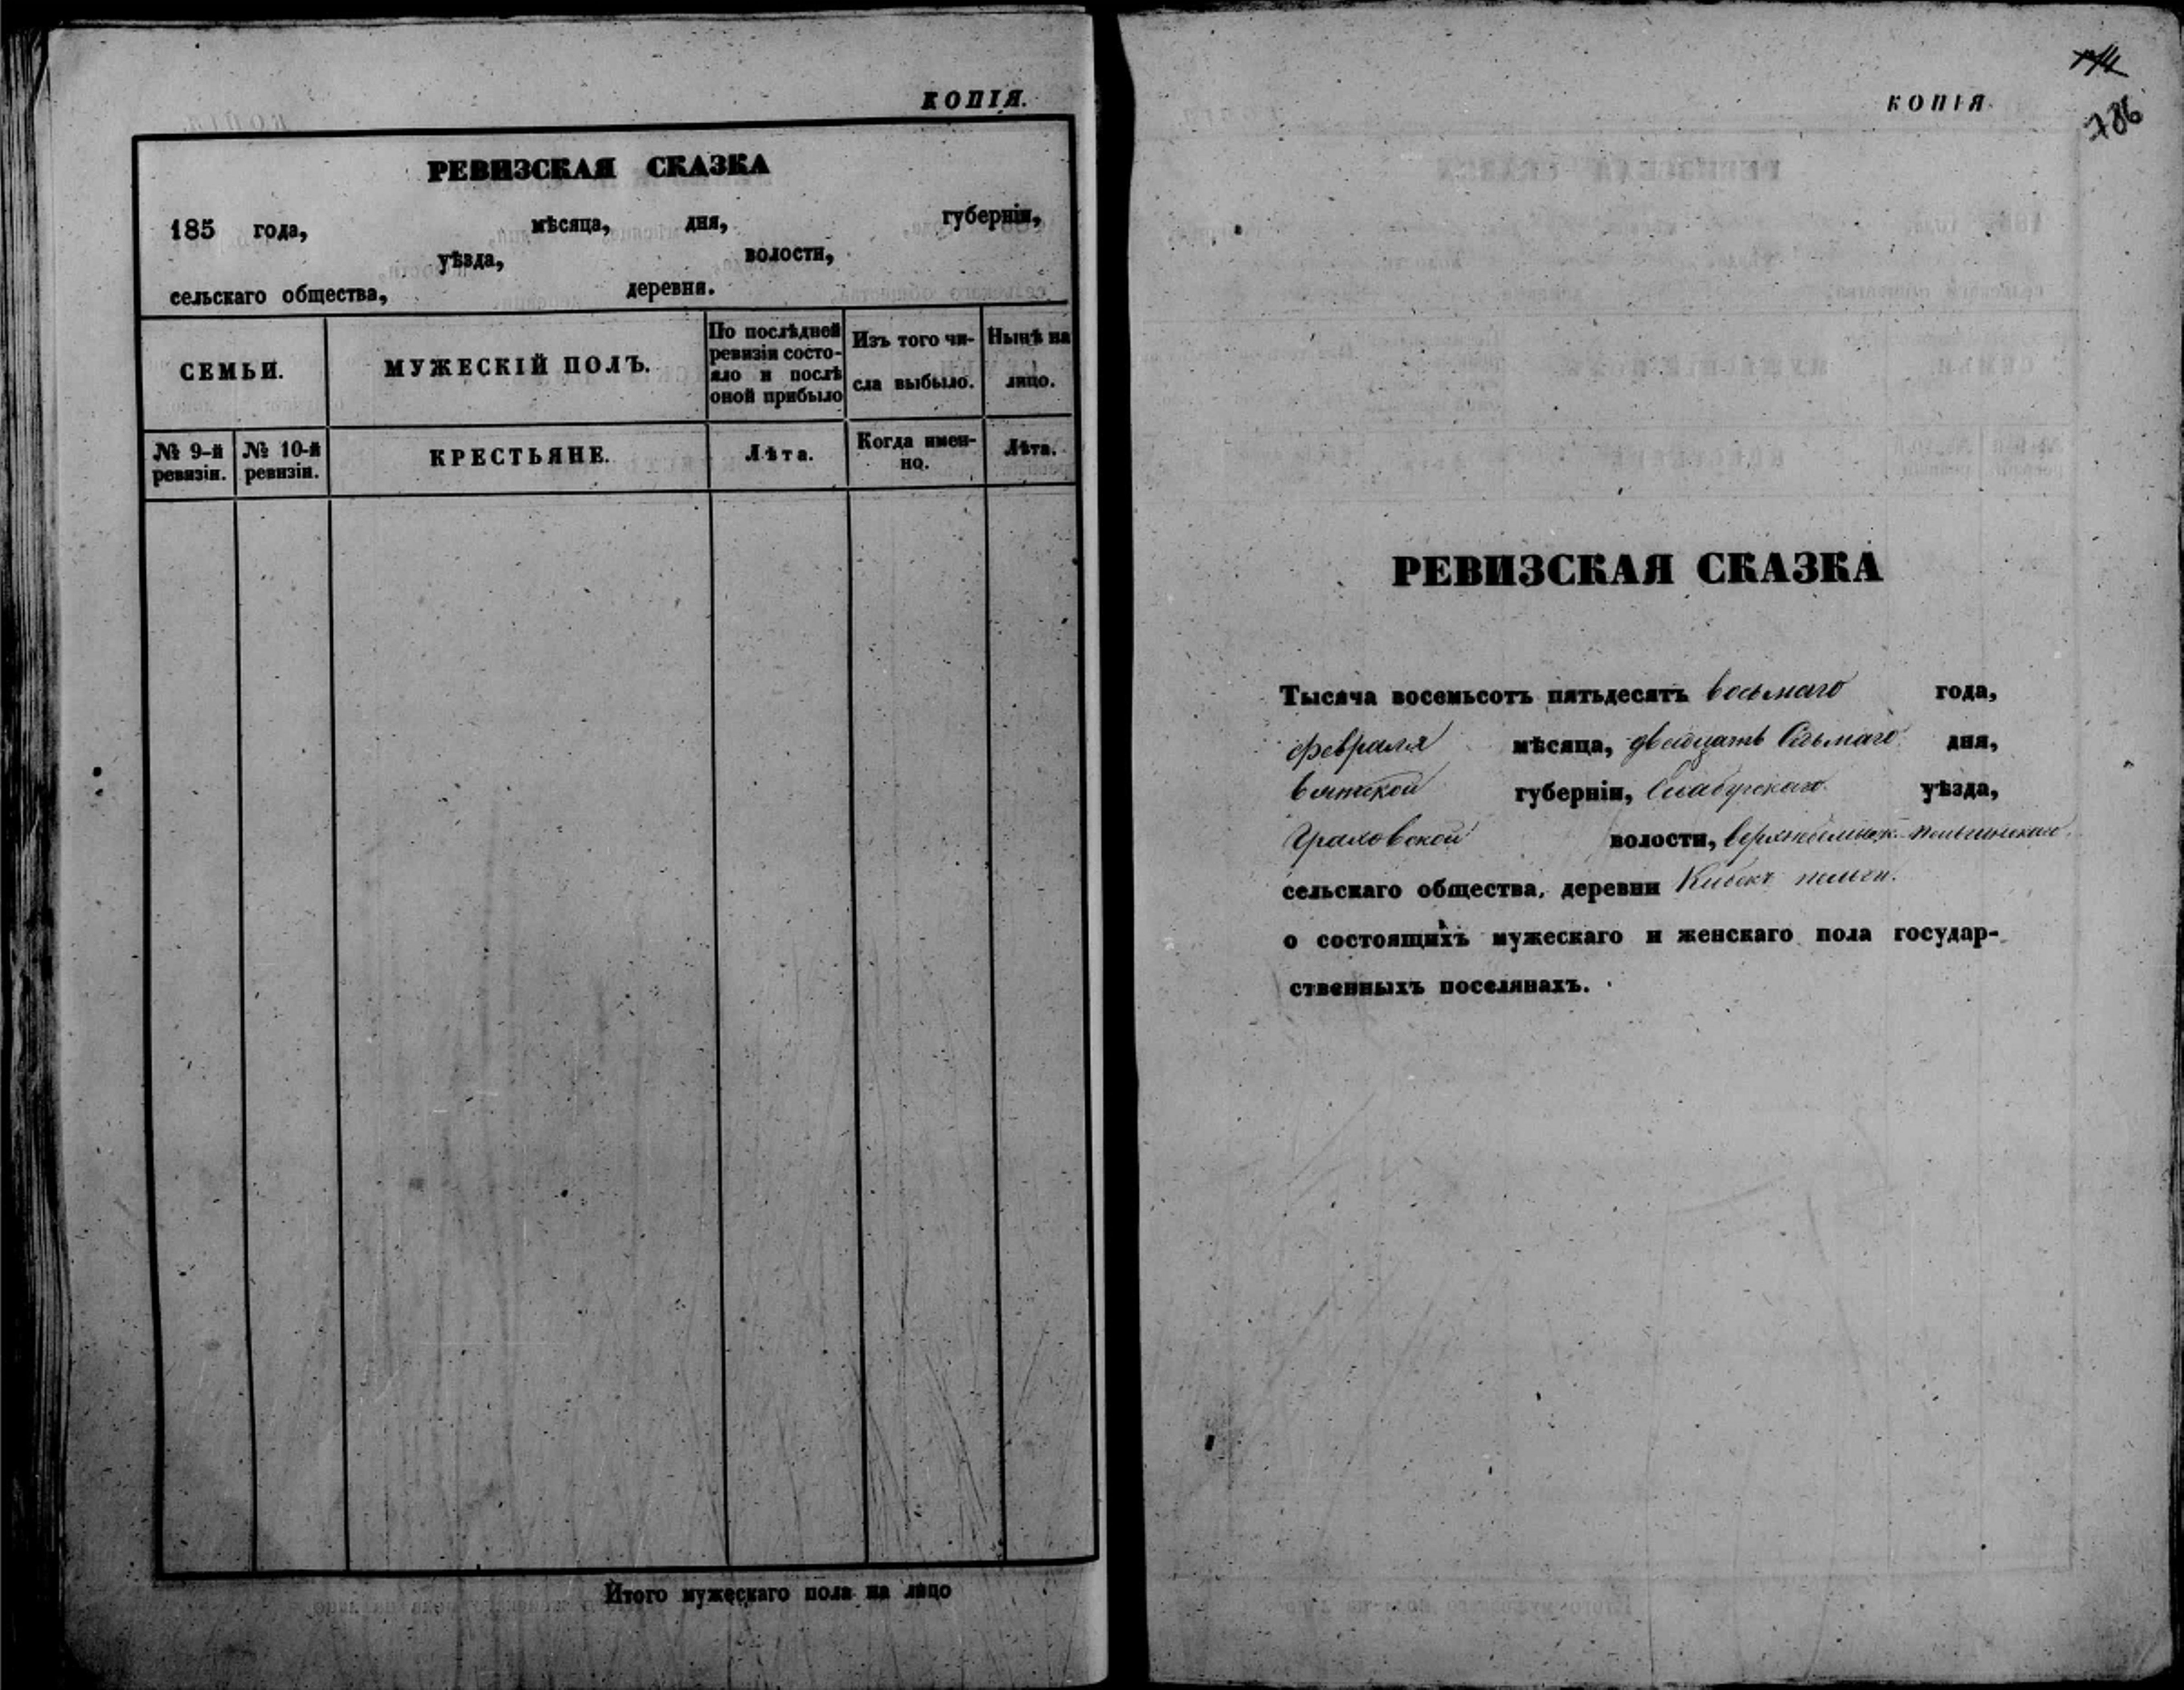 КОПІЯ.
РЕВИЗСКАЯ СКАЗКА
185 года, мѣсяца, дня, губерніи,
уѣзда, волости,
сельскаго общества, деревни.
СЕМЬИ.
МУЖЕСКІЙ ПОЛЪ.
По послѣдней
ревизіи состо-
яло и послѣ
оной прибыло
Изъ того чи-
сла выбыло.
Нынѣ на
лицо.
№ 9-й
ревизіи.
№ 10-й
ревизіи.
КРЕСТЬЯНЕ.
Лѣта.
Когда имен-
но.
Лѣта.
Итого мужескаго пола на лицо
КОПІЯ.
786
РЕВИЗСКАЯ СКАЗКА
Тысяча восемьсотъ пятьдесятъ восьмаго года,
февраля мѣсяца, двадцать седьмаго дня,
вятской губерніи, Елабугскаго уѣзда,
Граховской волости,
сельскаго общества, деревни
о состоящихъ мужескаго и женскаго пола государ-
ственныхъ поселянахъ.